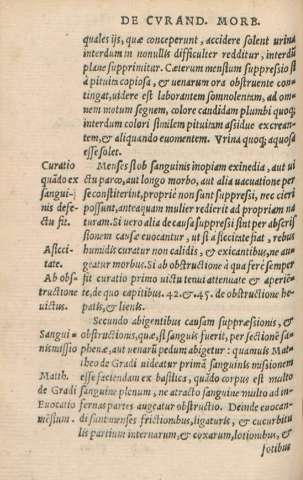 DE CVRAND. MORB.
quales ijs, quæ conceperunt, accidere solent urina
interdum in nonullis difficulter redditur, interdũ
plane supprimitur. Cæterum mensium suppressio sit
à pituita copiosa, & uenarum ora obstruente con-
tingat, uidere est laborantem somnolentem, ad om-
nem motum segnem, colore candidam plumbi quoq;
interdum colori similem pituitam aßidue excrean-
tem, & aliquando euomentem. Vrina quoq; aquosa
esse solet.
Curatio
quãdo ex
sangui-
nis defe-
ctu fit.
Menses si ob sanguinis inopiam exinedia, aut ui
ctu parco, aut longo morbo, aut alia uacuatione per
se constiterint, propriè non sunt suppreßi, nec cieri
possunt, anteaquam mulier redierit ad propriam na
turam. Si uero alia de causa suppreßi sint per abscis
sionem causæ euocantur, ut si a siccitate fiat, rebus
A sicci-
tate.
humidis curatur non calidis, & exicantibus, ne au-
geatur morbus. Si ab obstructione à qua ferè semper
Ab obs-
tructione
uictus.
fit curatio primo uictu tenui attenuate & aperiẽ-
te, de quo capitibus. 42. & 45. de obstructione he-
patis, & lienis.
Secundo abigentibus causam suppræsionis, &
Sangui-
nis missio
obstructionis, quæ, si sanguis fuerit, per sectionẽ sa-
phenæ, aut uenarũ pedum abigetur : quamuis Mat
theo de Gradi uideatur primã sanguinis misionem
Matth.
de Gradi
esse faciendam ex basilica, quãdo corpus est multo
sanguine plenum, ne atracto sanguine multo ad in-
Euocatio
mẽsium.
fernas partes augeatur obstructio. Deinde euocan-
di sunt menses frictionibus, ligaturis, & cucurbitu
lis partium internarum, & coxarum, lotionibus, &
fotibus